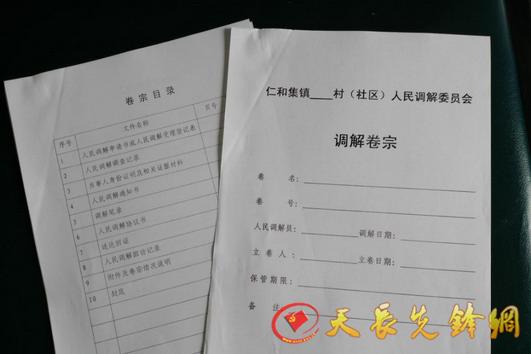 卷宗目录
序号 文件名称 页号
1 人民调解申请书或人民调解受理登记表
2 人民调解调查记录
3 当事人身份证明及相关证据材料
4 人民调解通知书
5 调解笔录
6 人民调解协议书
7 送达回证
8 人民调解回访记录
9 附件及卷宗情况说明
10 封底
仁和集镇____村（社区）人民调解委员会
调解卷宗
卷 名：
卷 号：
人民调解员： 调解日期：
立 卷 人： 立卷日期：
保管期限：
备 注
天长先鋒網